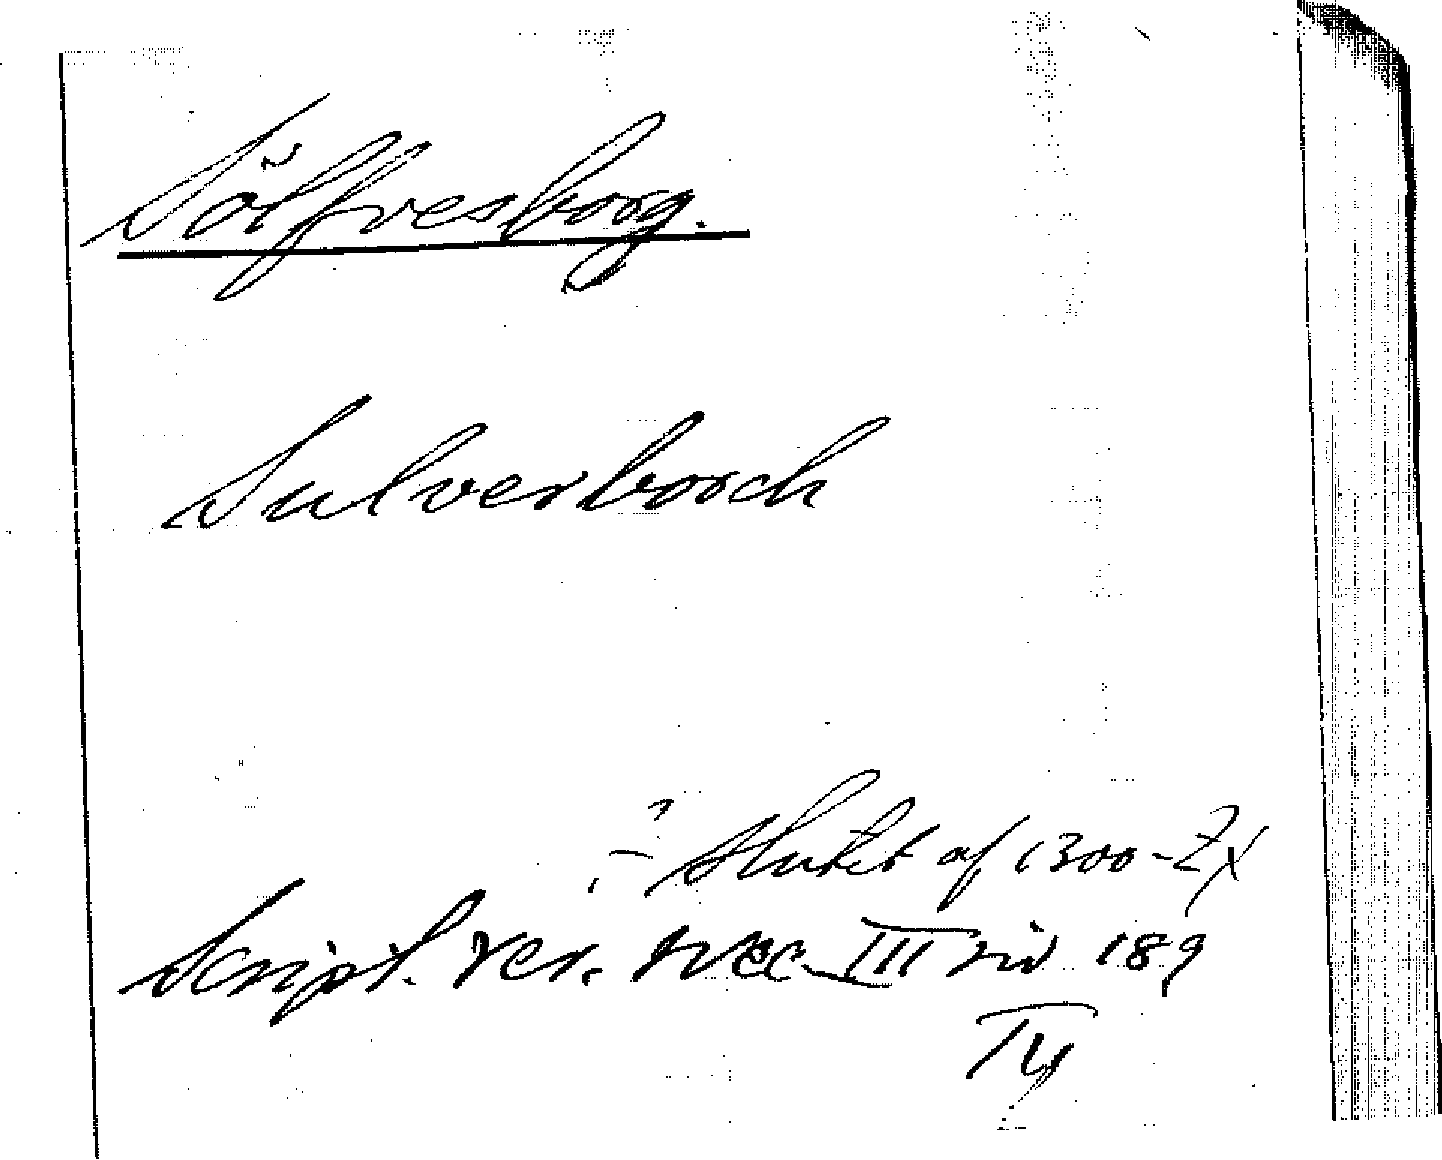 Sölfvesborg.
Sulverborch
slutet af 1300-
Script. rer. svec. III sid 189
Ty